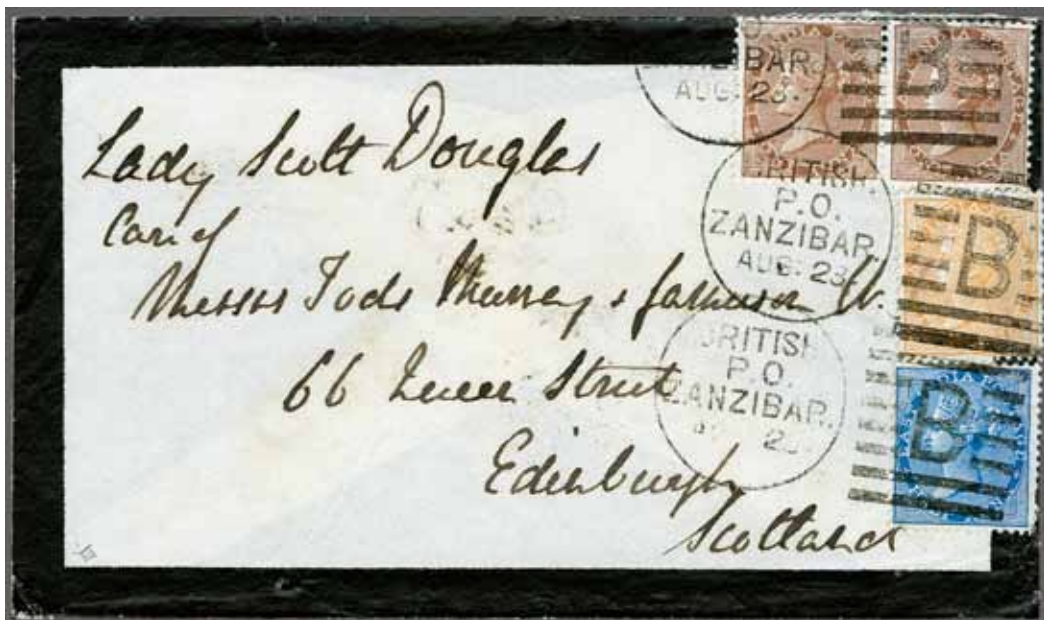 Lady Scott Douglas
Care of
Messrs Tods Murray & Jamieson W.
66 Queen Street
Edinburgh
Scotland
ZANZIBAR.
AUG: 23.
BRITISH.
P.O.
ZANZIBAR.
AUG: 23
B
BRITISH
P.O.
ZANZIBAR.
B